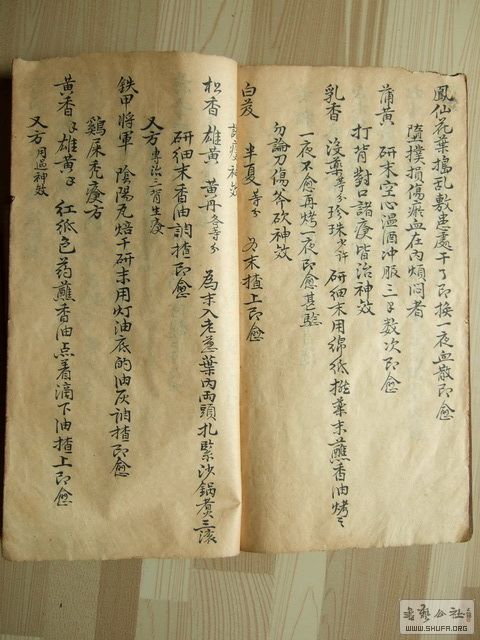 鳳仙花葉搗乱敷患處干了即換一夜血散即愈
隨撲損傷瘀血在內煩悶者
蒲黃 研末空心温酒冲服三子数次即愈
打背對口諸瘡皆治神效
乳香 没藥等分 珍珠少許 研细末用綿纸捲藥末蘸香油烤之
一夜不愈再烤一夜即愈甚驗
勿論刀傷斧砍神效
白芨 半夏等分 为末揸上即愈
諸瘡神效
松香 雄黃 黃丹各等分 為末入老葱葉內兩頭扎緊沙鍋煮三滾
研细末香油訥揸即愈
又方 專治二背生瘡
鉄甲將軍 陰陽瓦焙干研末用灯油底的油灰訥揸即愈
鷄屎秃瘡方
黃香子 雄黃子 紅紙色药蘸香油点着滴下油揸上即愈
又方 用過神效
書藝公社
WWW.SHUFA.ORG